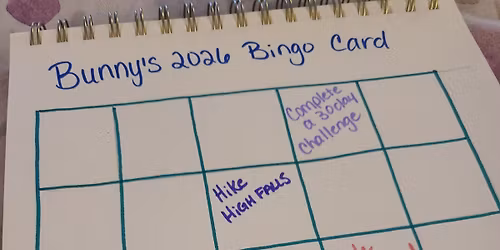 Bunny's 2026 Bingo Card
Complete
a 30day
challenge
Hike
HIGH FALLS